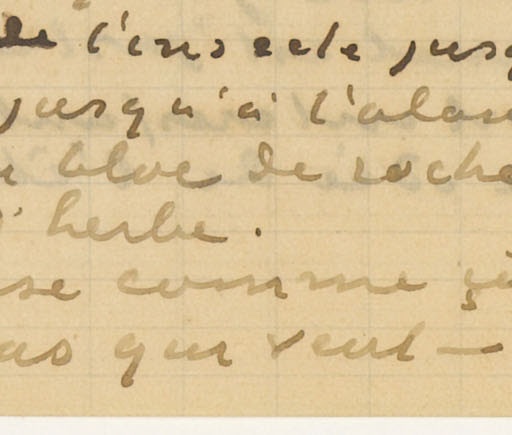 de l'insecte jusq
jusqu'à l'alou
bloc de roche
herbe.
se comme ça
as qui veut —